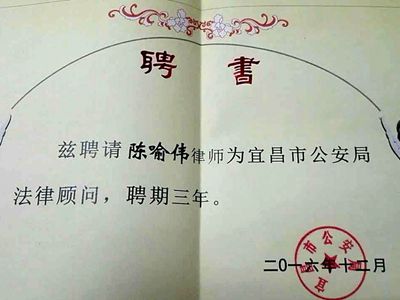 聘 书
兹聘请陈喻伟律师为宜昌市公安局
法律顾问，聘期三年。
宜昌市公安局
二〇一六年十二月